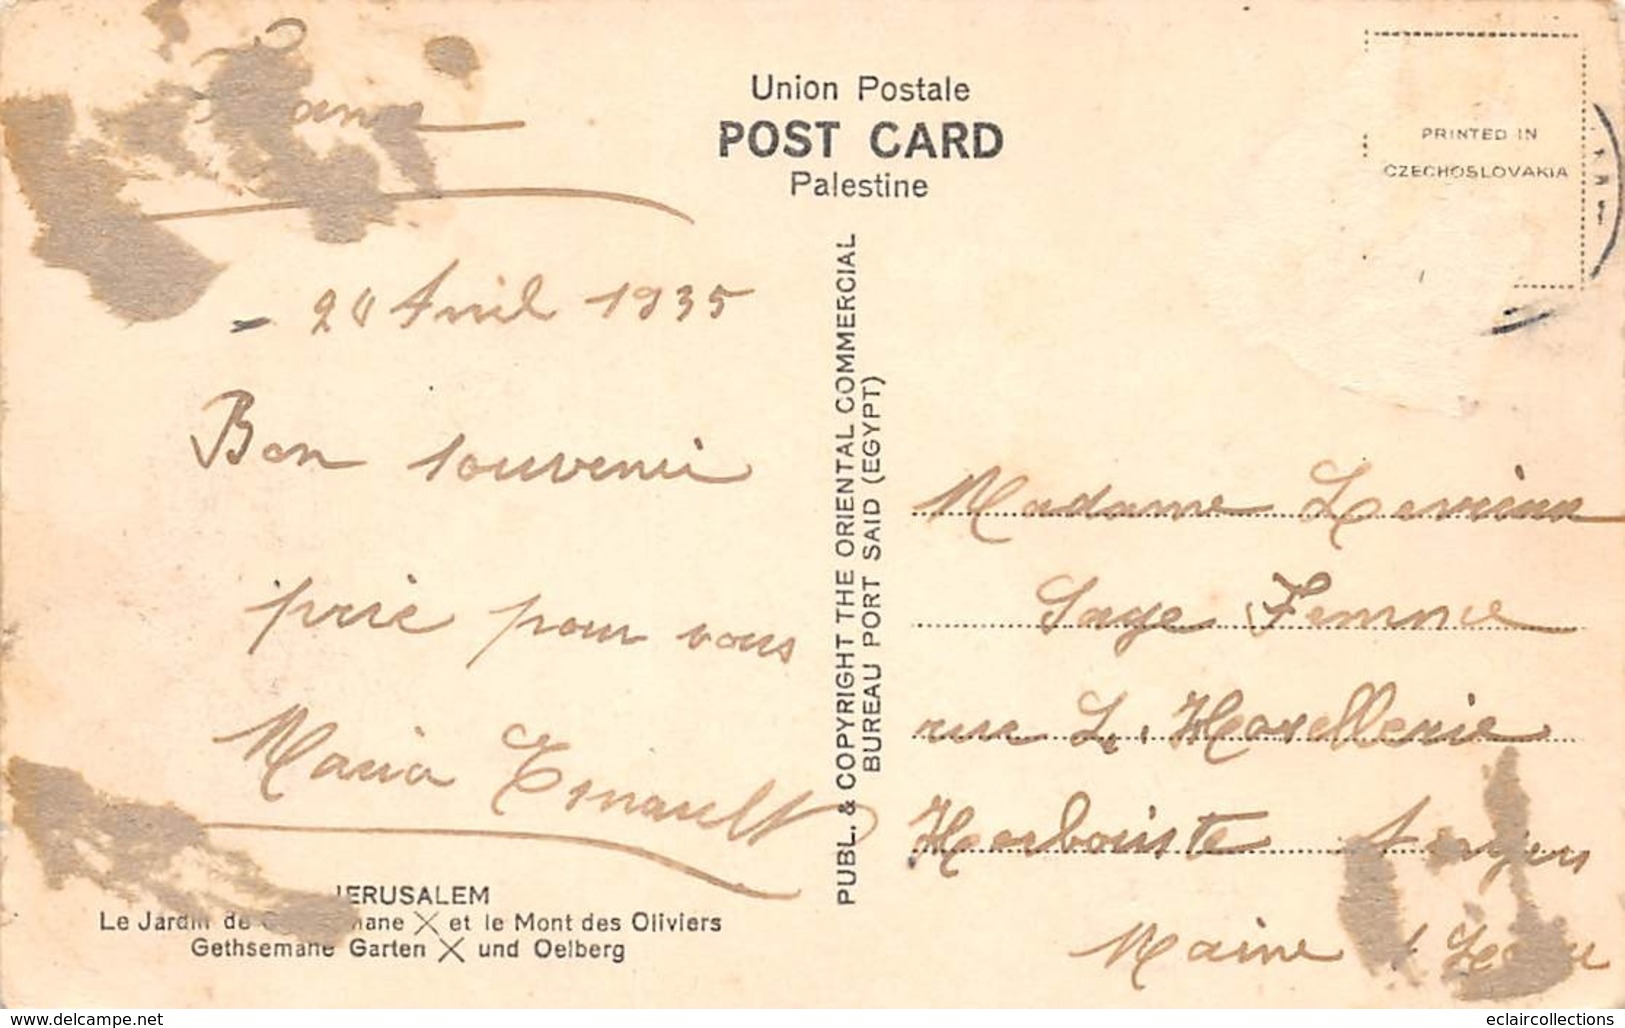 Union Postale
POST CARD
Palestine
PRINTED IN
CZECHOSLOVAKIA
20 Avril 1935
Bon souvenir
prie pour vous
Maria Esnault
JERUSALEM
Le Jardin de mane X et le Mont des Oliviers
Gethsemane Garten X und Oelberg
PUBL. & COPYRIGHT THE ORIENTAL COMMERCIAL
BUREAU PORT SAID (EGYPT)
Madame
Sage Femme
rue
Herboriste Angers
Maine Loire
www.delcampe.net
eclaircollections